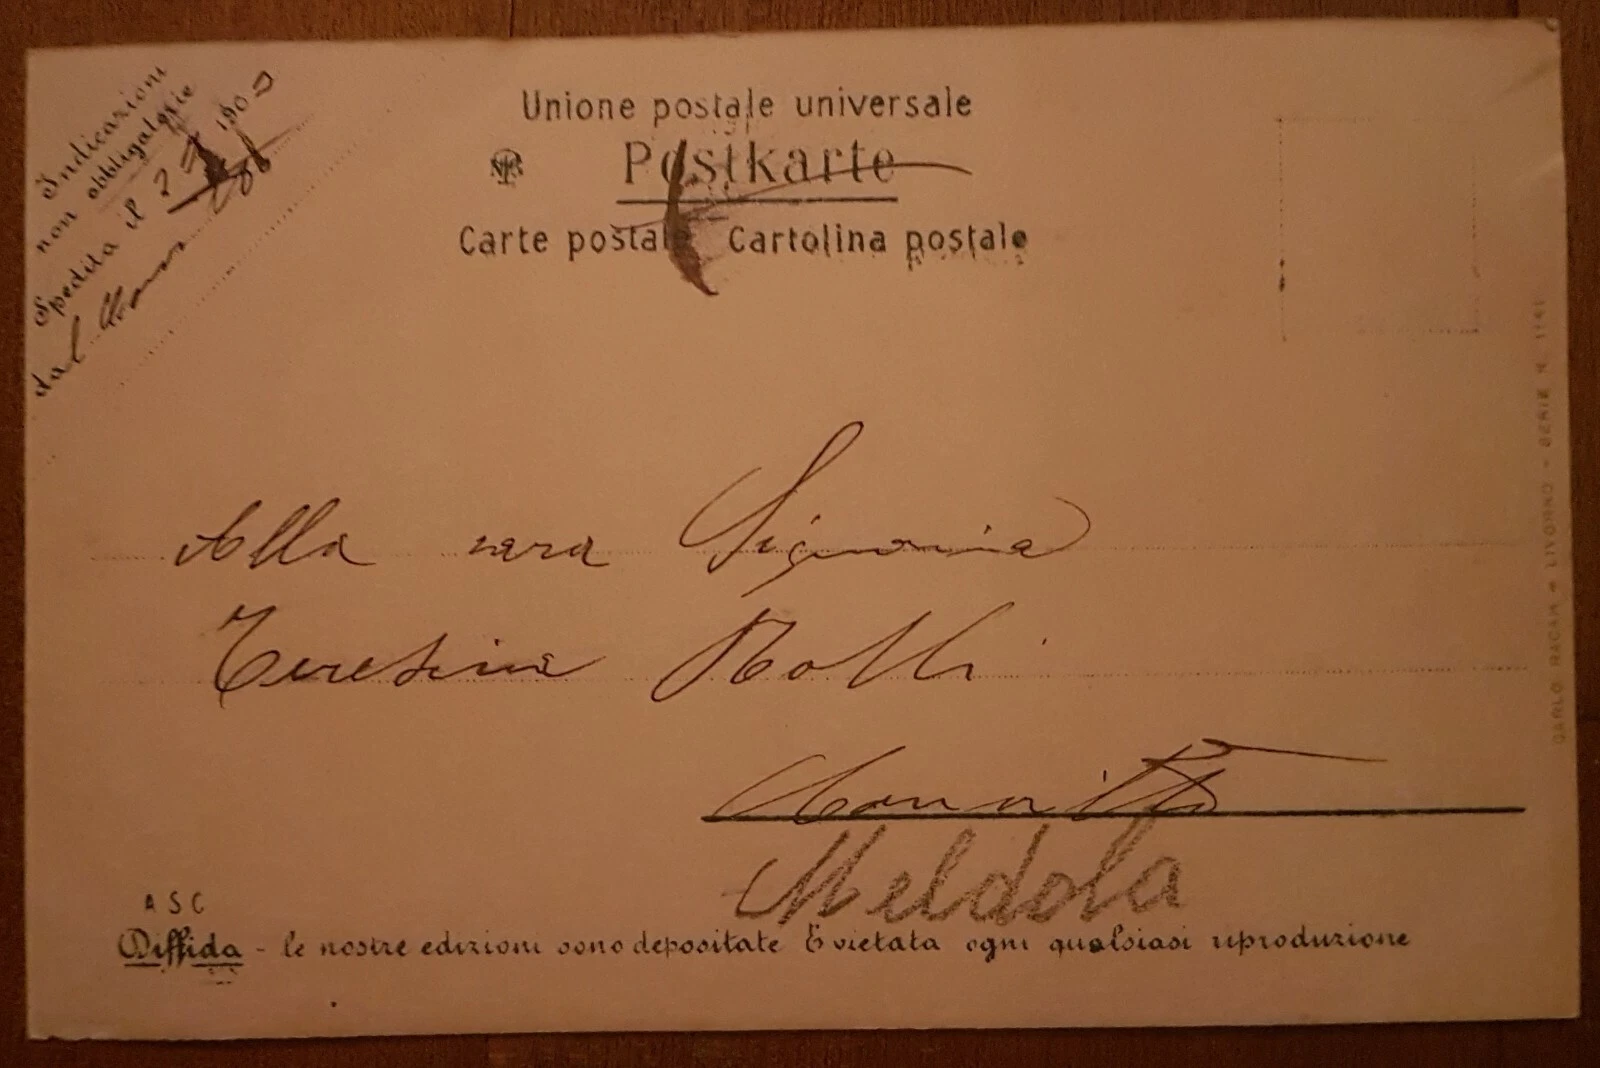 Indicazioni
non obbligatorie
Spedita il 190
dal
Unione postale universale
Postkarte
Carte postale Cartolina postale
Alla cara Signorina
Teresina
Meldola
A S C
Diffida - le nostre edizioni sono depositate È vietata ogni qualsiasi riproduzione
CARLO RACAH - LIVORNO - SERIE N. 1141